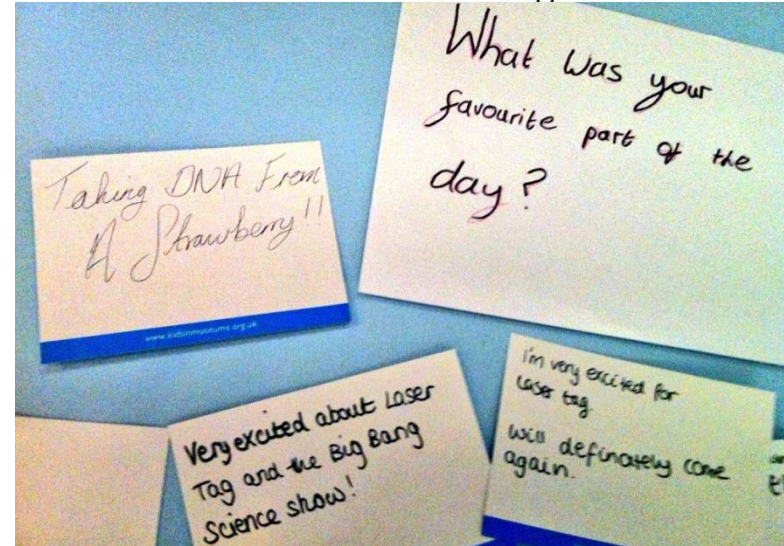 What was your
favourite part of the
day?
Taking DNA From
A Strawberry!!
www.kidsinmuseums.org.uk
Very excited about Laser
Tag and the Big Bang
Science show!
I'm very excited for
Laser tag
will definately come
again.